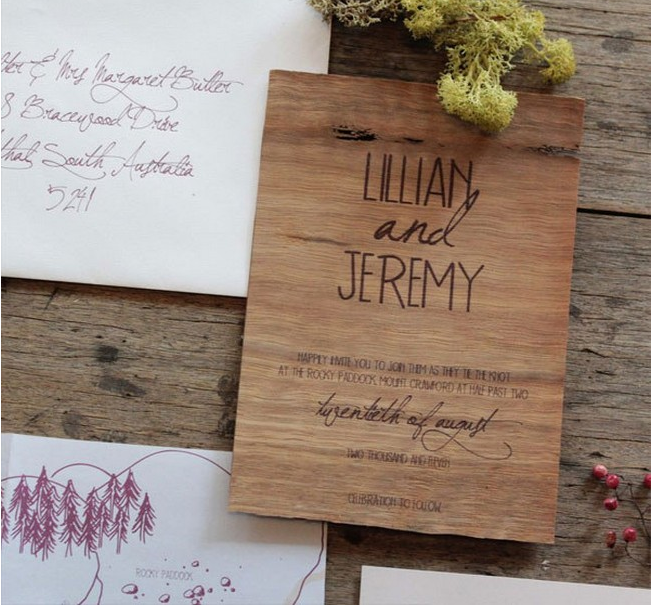 & Mrs Margaret Butler
8 Bracewood Drive
South Australia
5241
LILLIAN
and
JEREMY
HAPPILY INVITE YOU TO JOIN THEM AS THEY TIE THE KNOT
AT THE ROCKY PADDOCK, MOUNT CRAWFORD AT HALF PAST TWO
twentieth of august
TWO THOUSAND AND
CELEBRATION TO FOLLOW
ROCKY PADDOCK